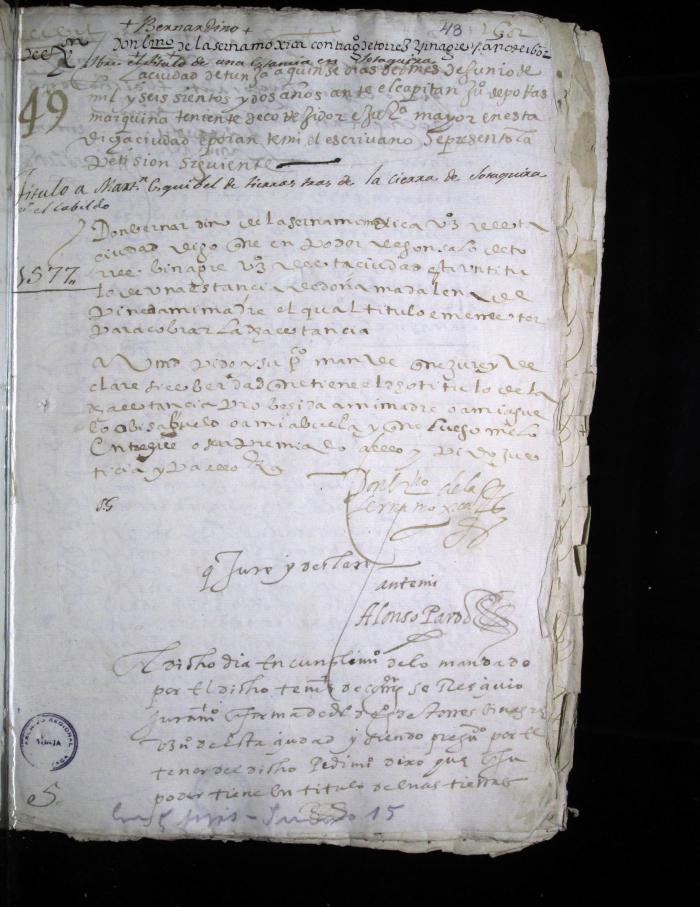 + Bernardino +
48 1602
Don br.no de la serna moxica contra g.o de torres Vinagre / año de 1602
sobre el titulo de una estancia en Sotaquira
la ciudad de tunja a quinse dias del mes de junio de
49
mil y seis sientos y dos años ante el capitan Ju.o de poRas
marquina teniente de coRexidor e Jus.a mayor en esta
dicha ciudad e por ante mi el escrivano se presento la
Petision siguiente
Titulo a Mart.n Esquibel de tierras tras de la cierra de Sotaquira
el Cabildo
Don bernardino de la serna moxica v.o desta
ciudad digo que en poder de gonsalo de to
1577
rres binagre v.o desta ciudad esta un titu
lo de una estancia de doña madalena de
Pineda mi madre el qual titulo e menester
para cobrar la d.ha estancia
A Vmd pido y sup.co mande que jure y de
clare si es berdad que tiene el d.ho titulo de la
d.ha estancia probeida a mi madre o a miague
lo o bisabuelo o a mi abuela y que luego me lo
entregue o sea premiado a ello y pido jus
ticia y para ello
Don br.no de la
serna moxica
q Jure y declare
ante mi
Alonso Pardo
El dicho dia En cunplimi.o de lo mandado
por el dicho teni.e de coRe.or se Resquio
juram.to en forma de d.o de g.o de torres binagre
vz.o de esta ciudad y siendo preg.do por el
tenor del dicho Pedimi.o dixo que en su
poder tiene un titulo de unas tierras
ARCHIVO REGIONAL
15